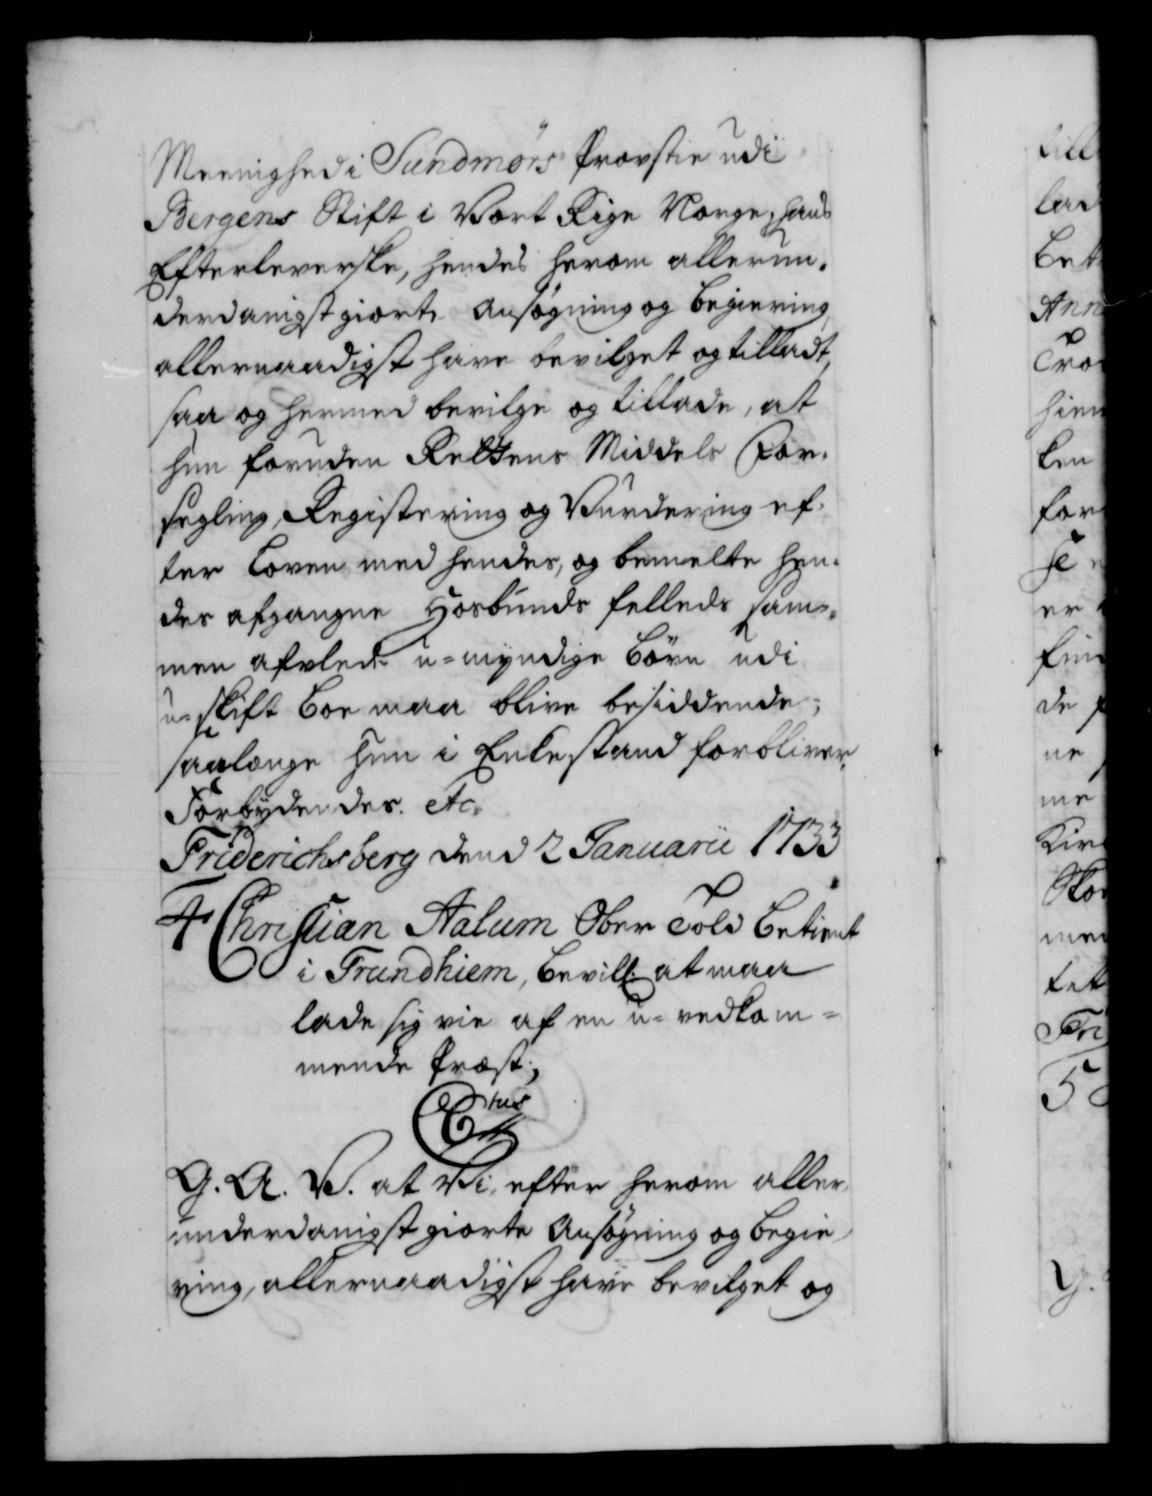 Meenighed i Sundmørs Provstie udi
Bergens Stift i Vort Rige Norge, hans
Efterleverske, hendes herom allerun-
derdanigst giorte Ansøgning og begiering,
allernaadigst have bevilget og tilladt,
saa og hermed bevilge og tillade, at
hun foruden Rettens Middels For-
segling, Registering og Vurdering ef-
ter Loven med hendes, og bemelte hen-
des afgangne Hosbunds felleds sam-
men aflede u-myndige Børn udi
u-skift Boe maa blive besiddende,
saalænge hun i Enkestand forbliver.
Forbydendes. etc.
Friderichsberg dend 2 Januarii 1733
4 Christian Aalum Ober Told betient
i Trundhiem, bevill: at maa
lade sig vie af en u-vedkom-
mende Præst;
Ctus
G. A. V. at Vi, efter herom aller-
underdanigst giorte Ansøgning og begie-
ring, allernaadigst have bevilget og
till
lad
Bet
Ann
Tro
hiem
ken
for
er
fin
de
ne
me
Kir
Sko
med
tet
Fri
5
G.